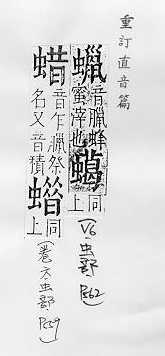 重訂直音篇
蠟
音臘蜂
蜜滓也
同
上
(V6 虫部
蜡
音乍臘祭
名又音積
同
上
(卷六虫部